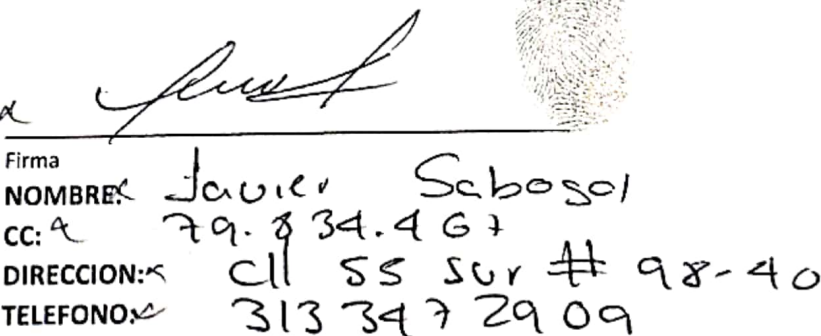 Firma
NOMBRE: Javier Sabogal
CC: 79.834.467
DIRECCION: Cll 55 sur # 98-40
TELEFONO: 313 347 2909